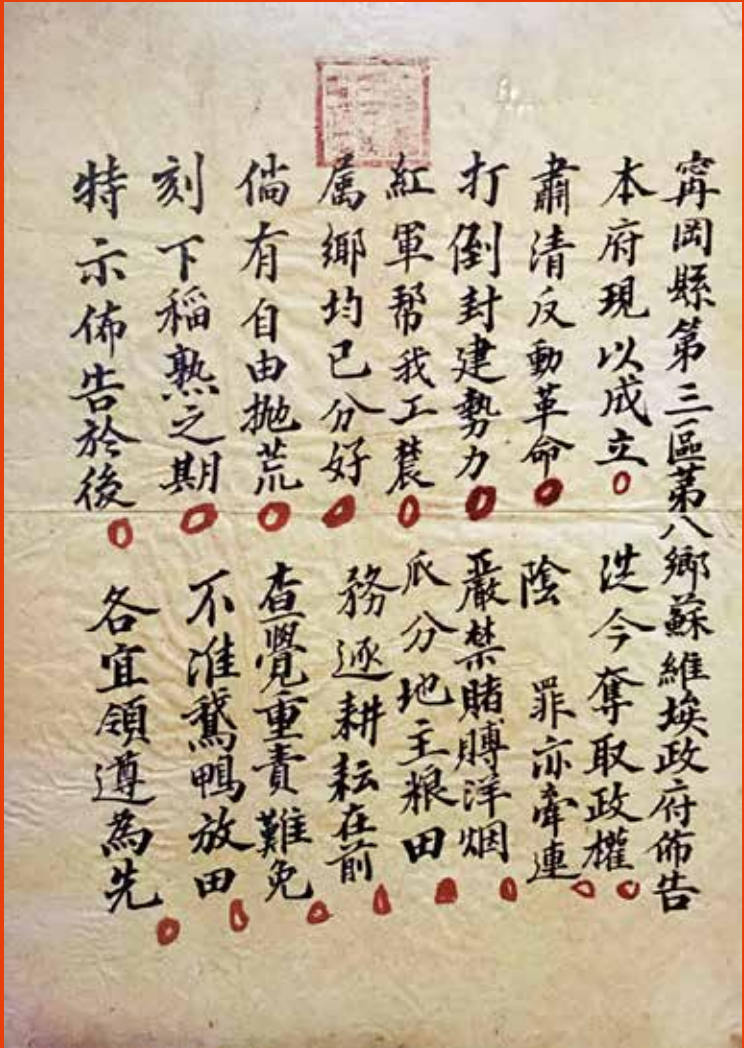 甯岡縣第三區第八鄉蘇維埃政府佈告
本府現以成立 今奪取政權
肅清反動革命 陰 罪亦牽連
打倒封建勢力 嚴禁賭賻洋烟
紅軍帮我工農 瓜分地主粮田
属鄉均已分好 務逐耕耘在前
倘有自由抛荒 查覺重責難免
刻下稲熟之期 不准鵞鴨放田
特示佈告於後 各宜領遵為先